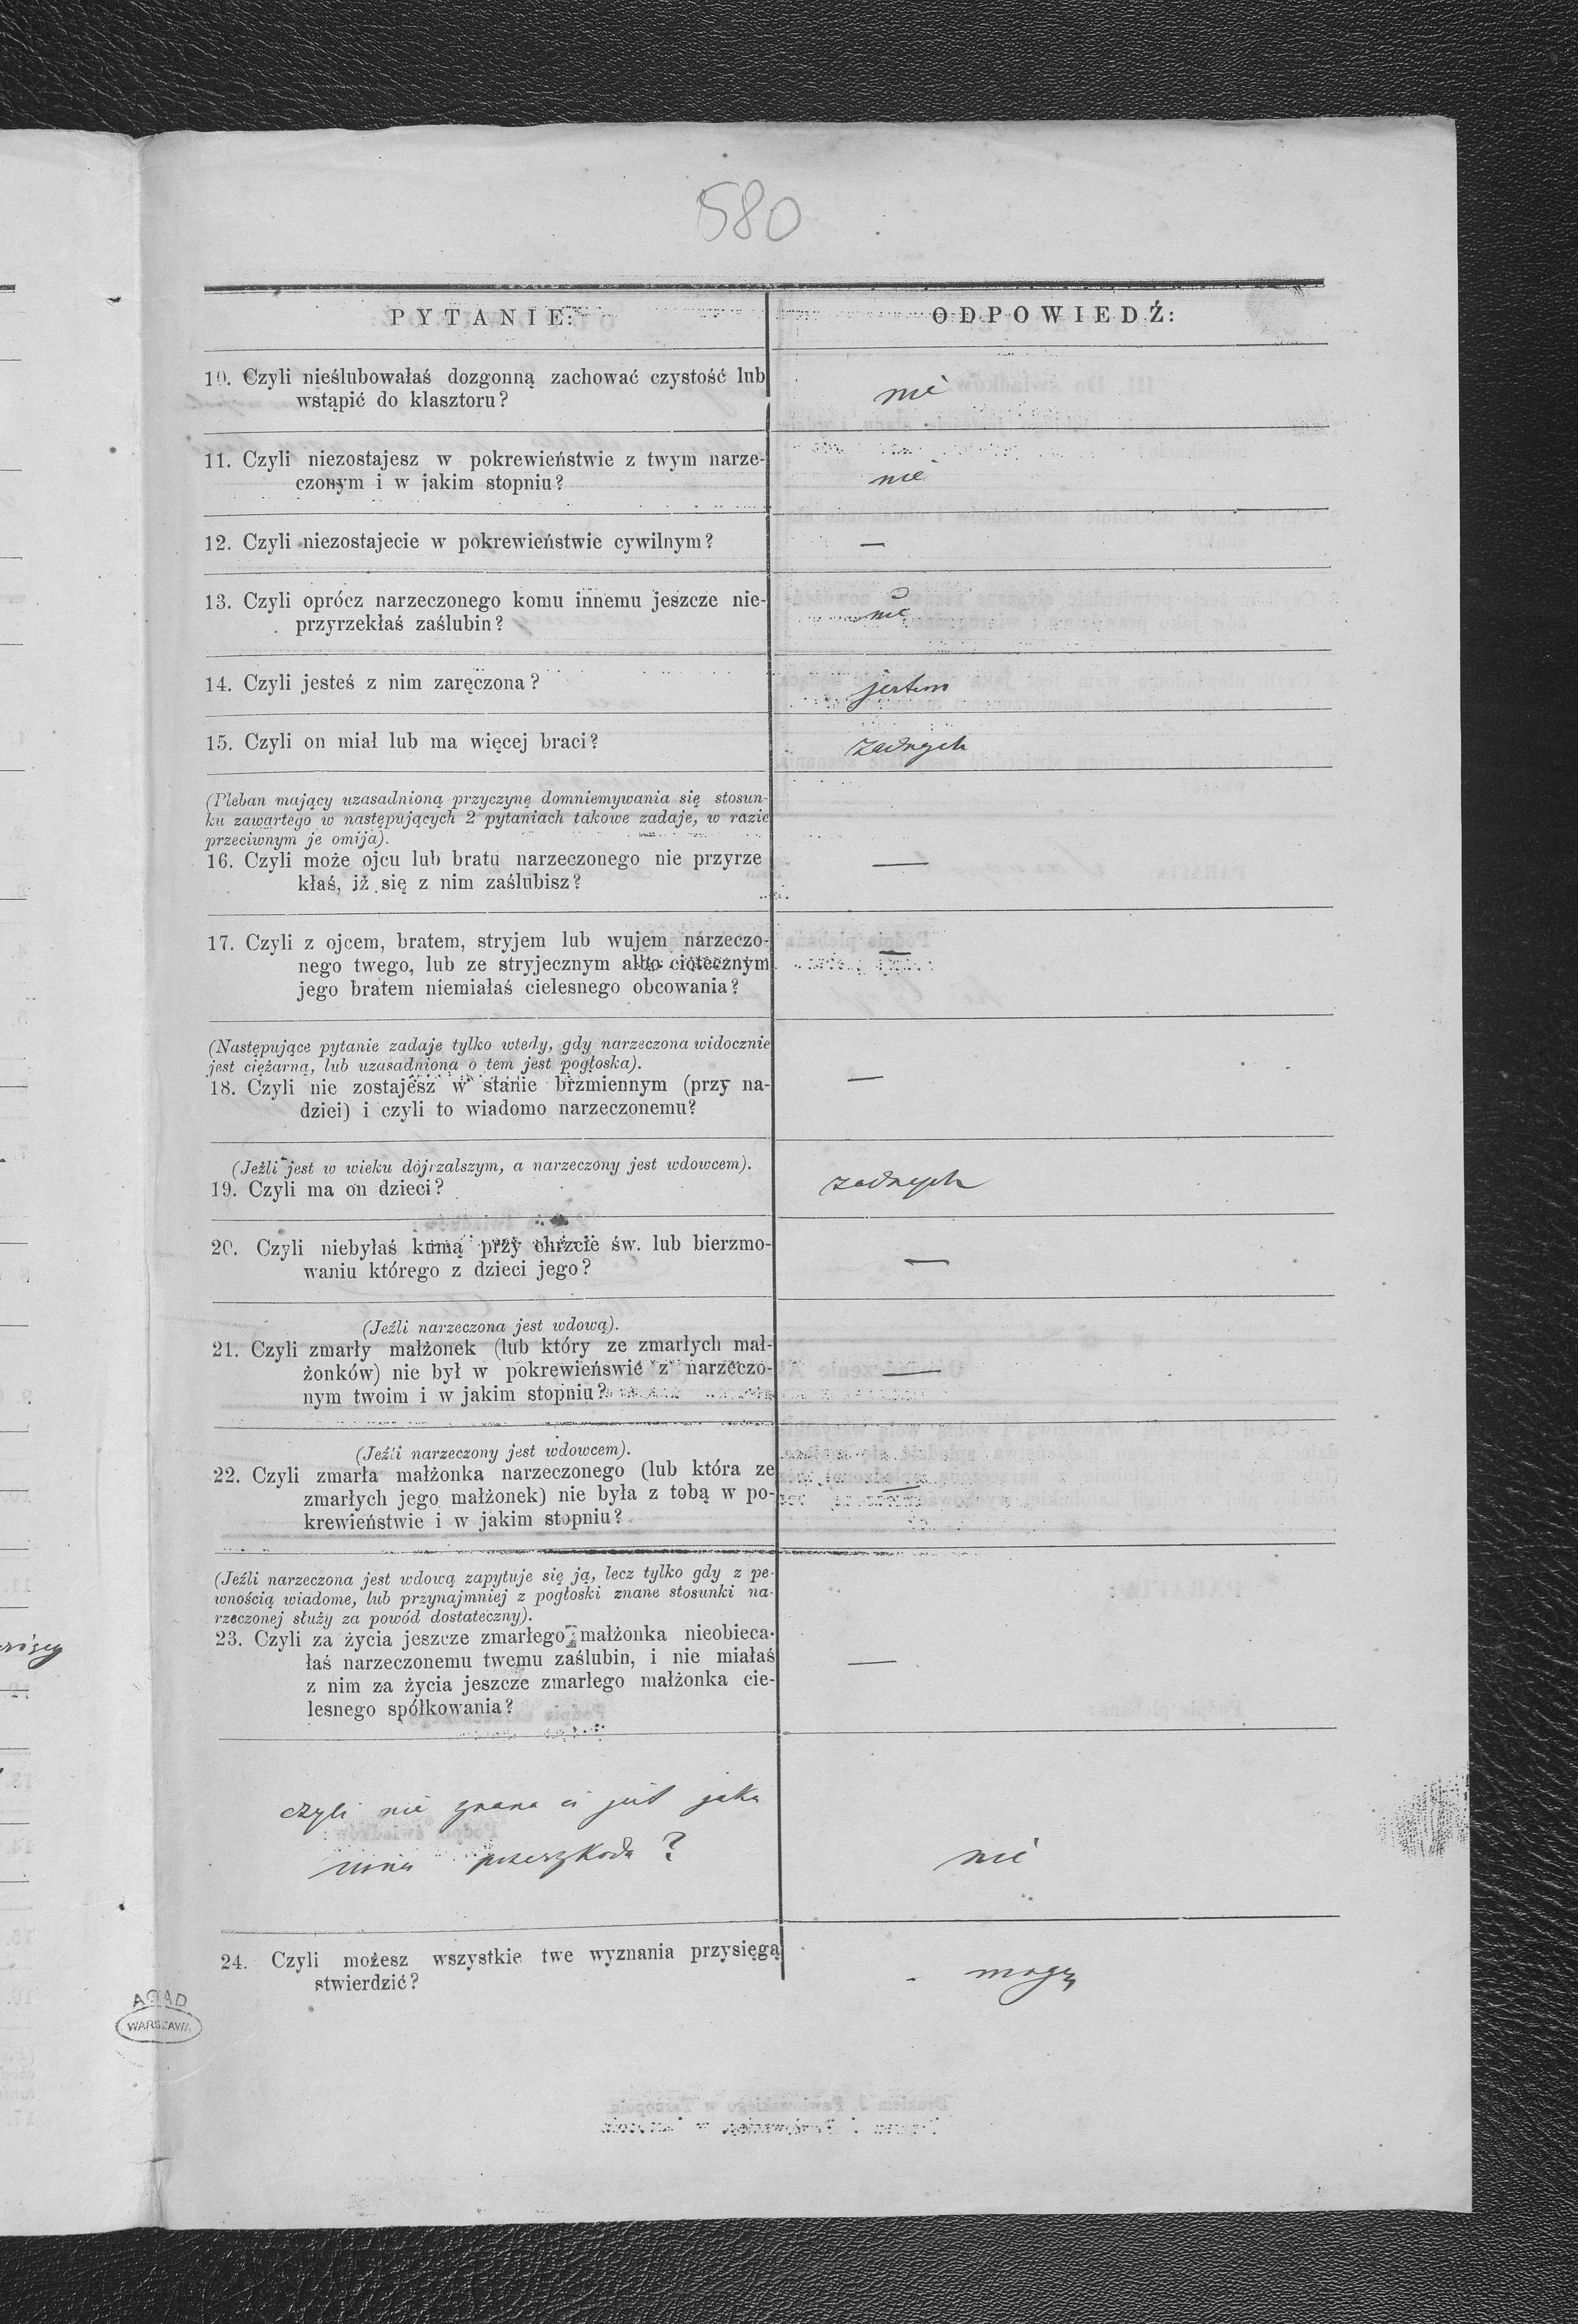 580
PYTANIE:
ODPOWIEDŹ:
10. Czyli nieślubowałaś dozgonną zachować czystość lub
wstąpić do klasztoru?
nie
11. Czyli niezostajesz w pokrewieństwie z twym narze-
czonym i w jakim stopniu?
nie
12. Czyli niezostajecie w pokrewieństwie cywilnym?
—
13. Czyli oprócz narzeczonego komu innemu jeszcze nie-
przyrzekłaś zaślubin?
nie
14. Czyli jesteś z nim zaręczona?
jestem
15. Czyli on miał lub ma więcej braci?
żadnych
(Pleban mający uzasadnioną przyczynę domniemywania się stosun-
ku zawartego w następujących 2 pytaniach takowe zadaje, w razie
przeciwnym je omija).
16. Czyli może ojcu lub bratu narzeczonego nie przyrze
kłaś, iż się z nim zaślubisz?
—
17. Czyli z ojcem, bratem, stryjem lub wujem narzeczo-
nego twego, lub ze stryjecznym albo ciotecznym
jego bratem niemiałaś cielesnego obcowania?
—
(Następujące pytanie zadaje tylko wtedy, gdy narzeczona widocznie
jest ciężarną, lub uzasadnioną o tem jest pogłoska).
18. Czyli nie zostajesz w stanie brzmiennym (przy na-
dziei) i czyli to wiadomo narzeczonemu?
—
(Jeźli jest w wieku dojrzalszym, a narzeczony jest wdowcem).
19. Czyli ma on dzieci?
żadnych
20. Czyli niebyłaś kumą przy chrzcie św. lub bierzmo-
waniu którego z dzieci jego?
—
(Jeźli narzeczona jest wdową).
21. Czyli zmarły małżonek (lub który ze zmarłych mał-
żonków) nie był w pokrewieńswie z narzeczo-
nym twoim i w jakim stopniu?
—
(Jeźli narzeczony jest wdowcem).
22. Czyli zmarła małżonka narzeczonego (lub która ze
zmarłych jego małżonek) nie była z tobą w po-
krewieństwie i w jakim stopniu?
—
(Jeźli narzeczona jest wdową zapytuje się ją, lecz tylko gdy z pe-
wnością wiadome, lub przynajmniej z pogłoski znane stosunki na-
rzeczonej służy za powód dostateczny).
23. Czyli za życia jeszcze zmarłego małżonka nieobieca-
łaś narzeczonemu twemu zaślubin, i nie miałaś
z nim za życia jeszcze zmarłego małżonka cie-
lesnego spółkowania?
—
czyli nie znana ci jest jaka
inna przeszkoda?
nie
24. Czyli możesz wszystkie twe wyznania przysięgą
stwierdzić?
mogę
AGAD
WARSZAWA